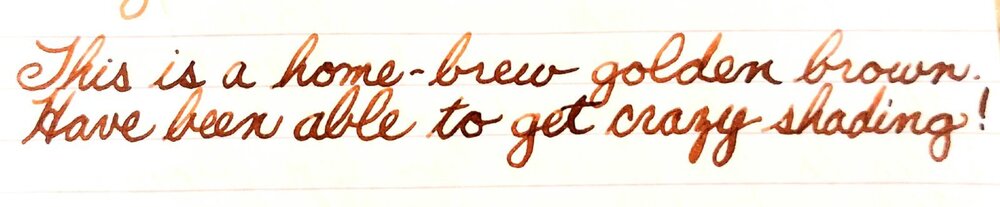 This is a home-brew golden brown.
Have been able to get crazy shading!